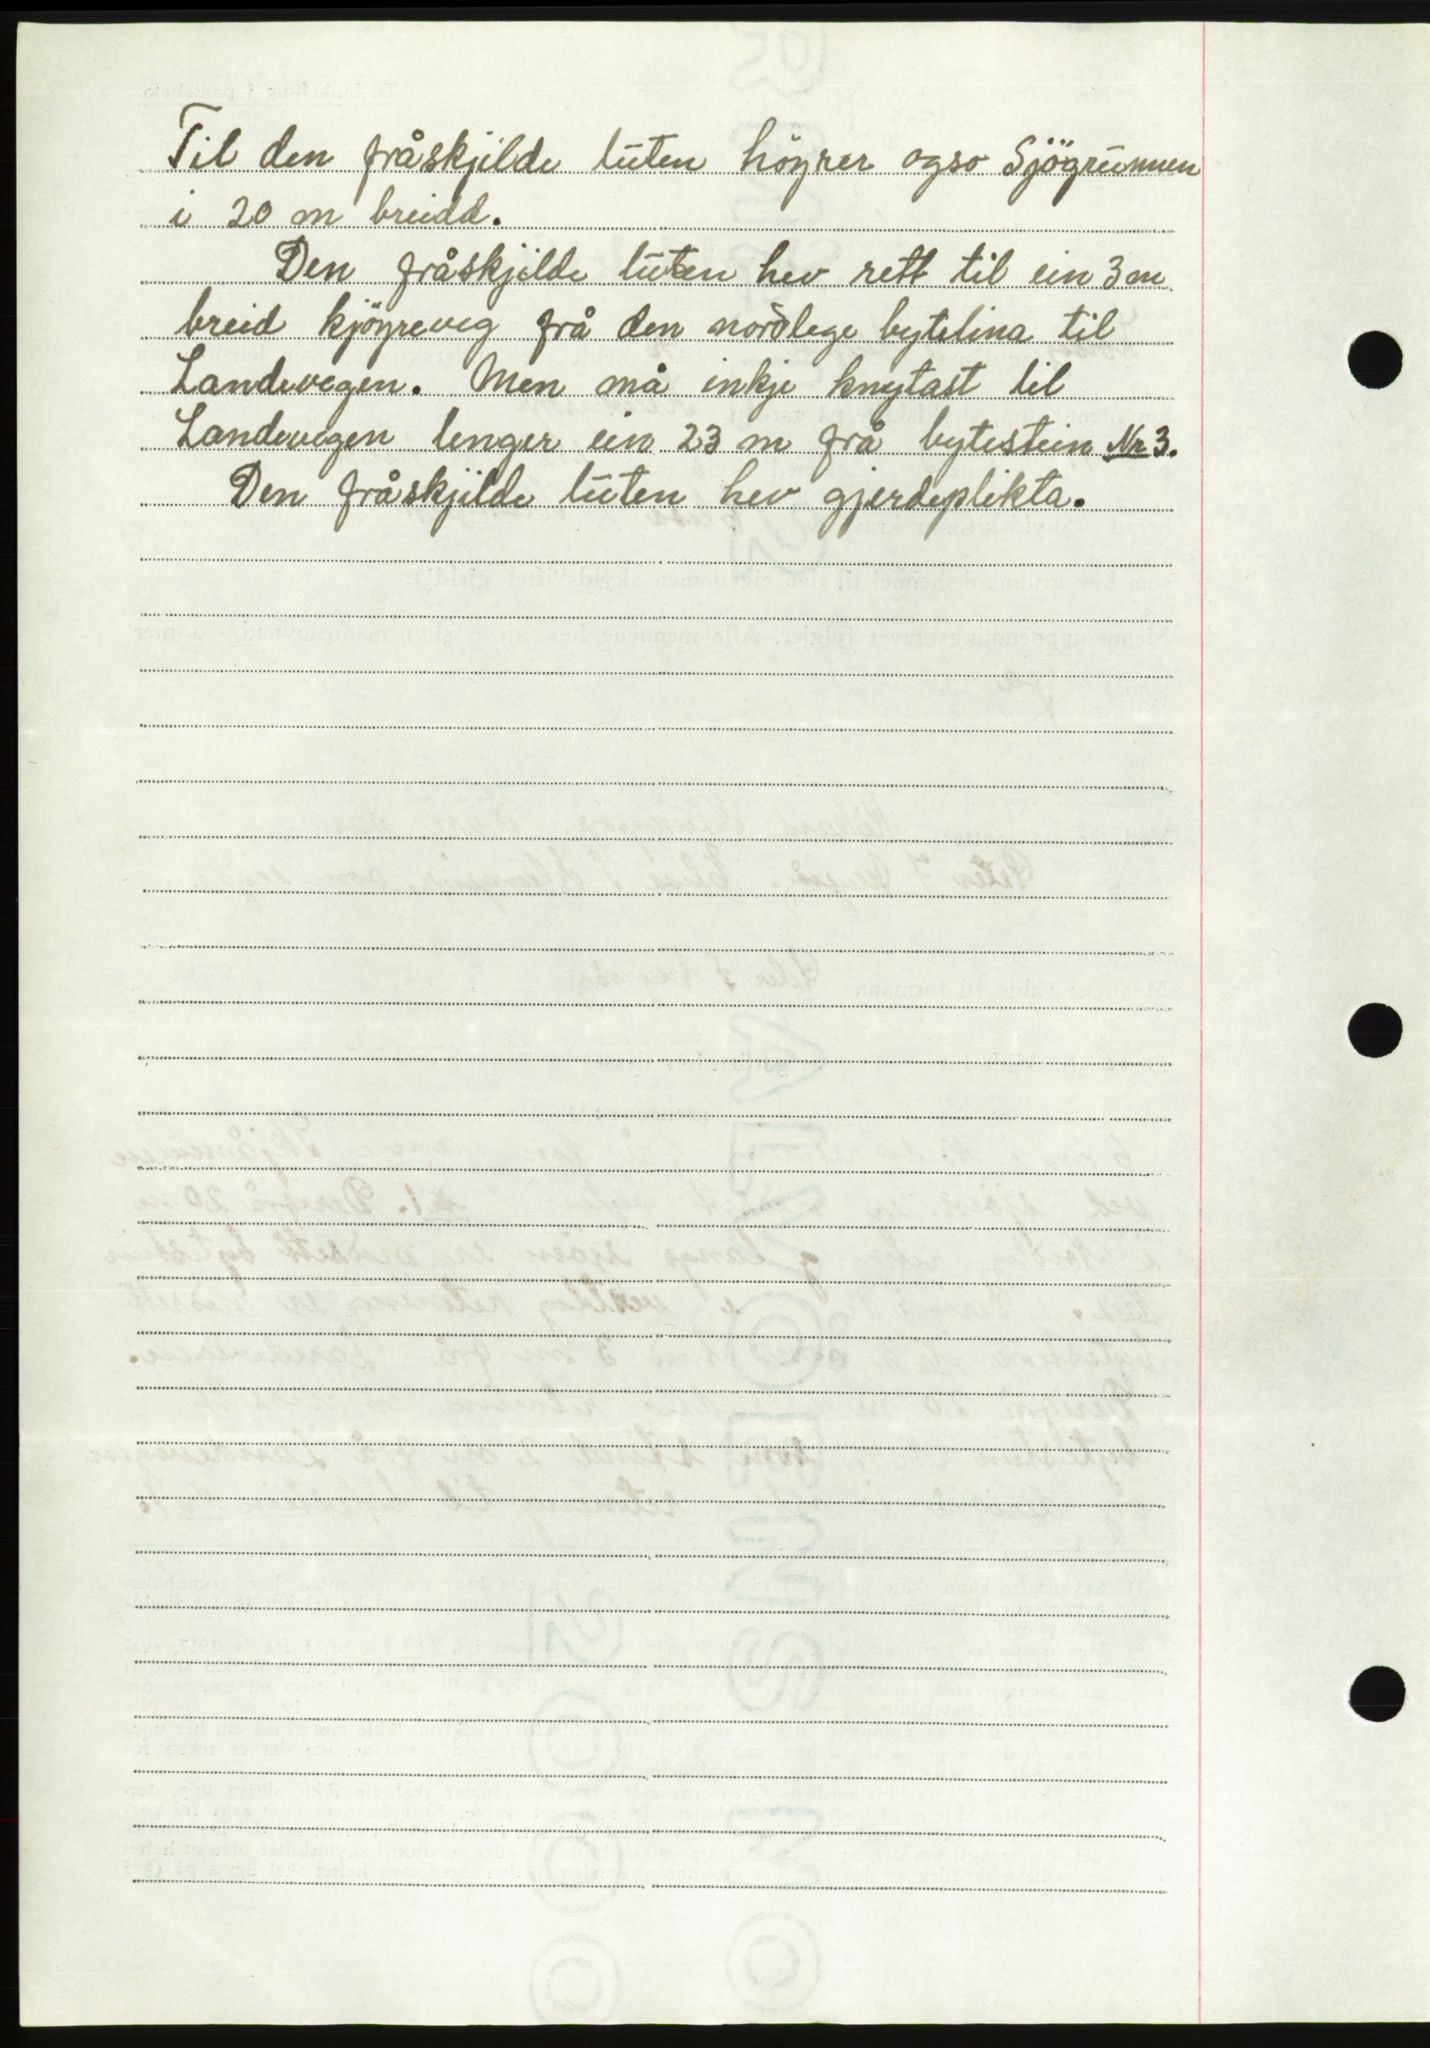 Til den fråskjilde luten höyrer ogso Sjögrunnen
i 20 m breidd.
Den fråskjilde luten hev rett til ein 3 m
breid kjöyreveg frå den nordlege bytelina til
Landevegen. Men må inkje knytast til
Landevegen lenger ein 23 m frå bytestein Nr 3.
Den fråskjilde luten hev gjerdeplikta.